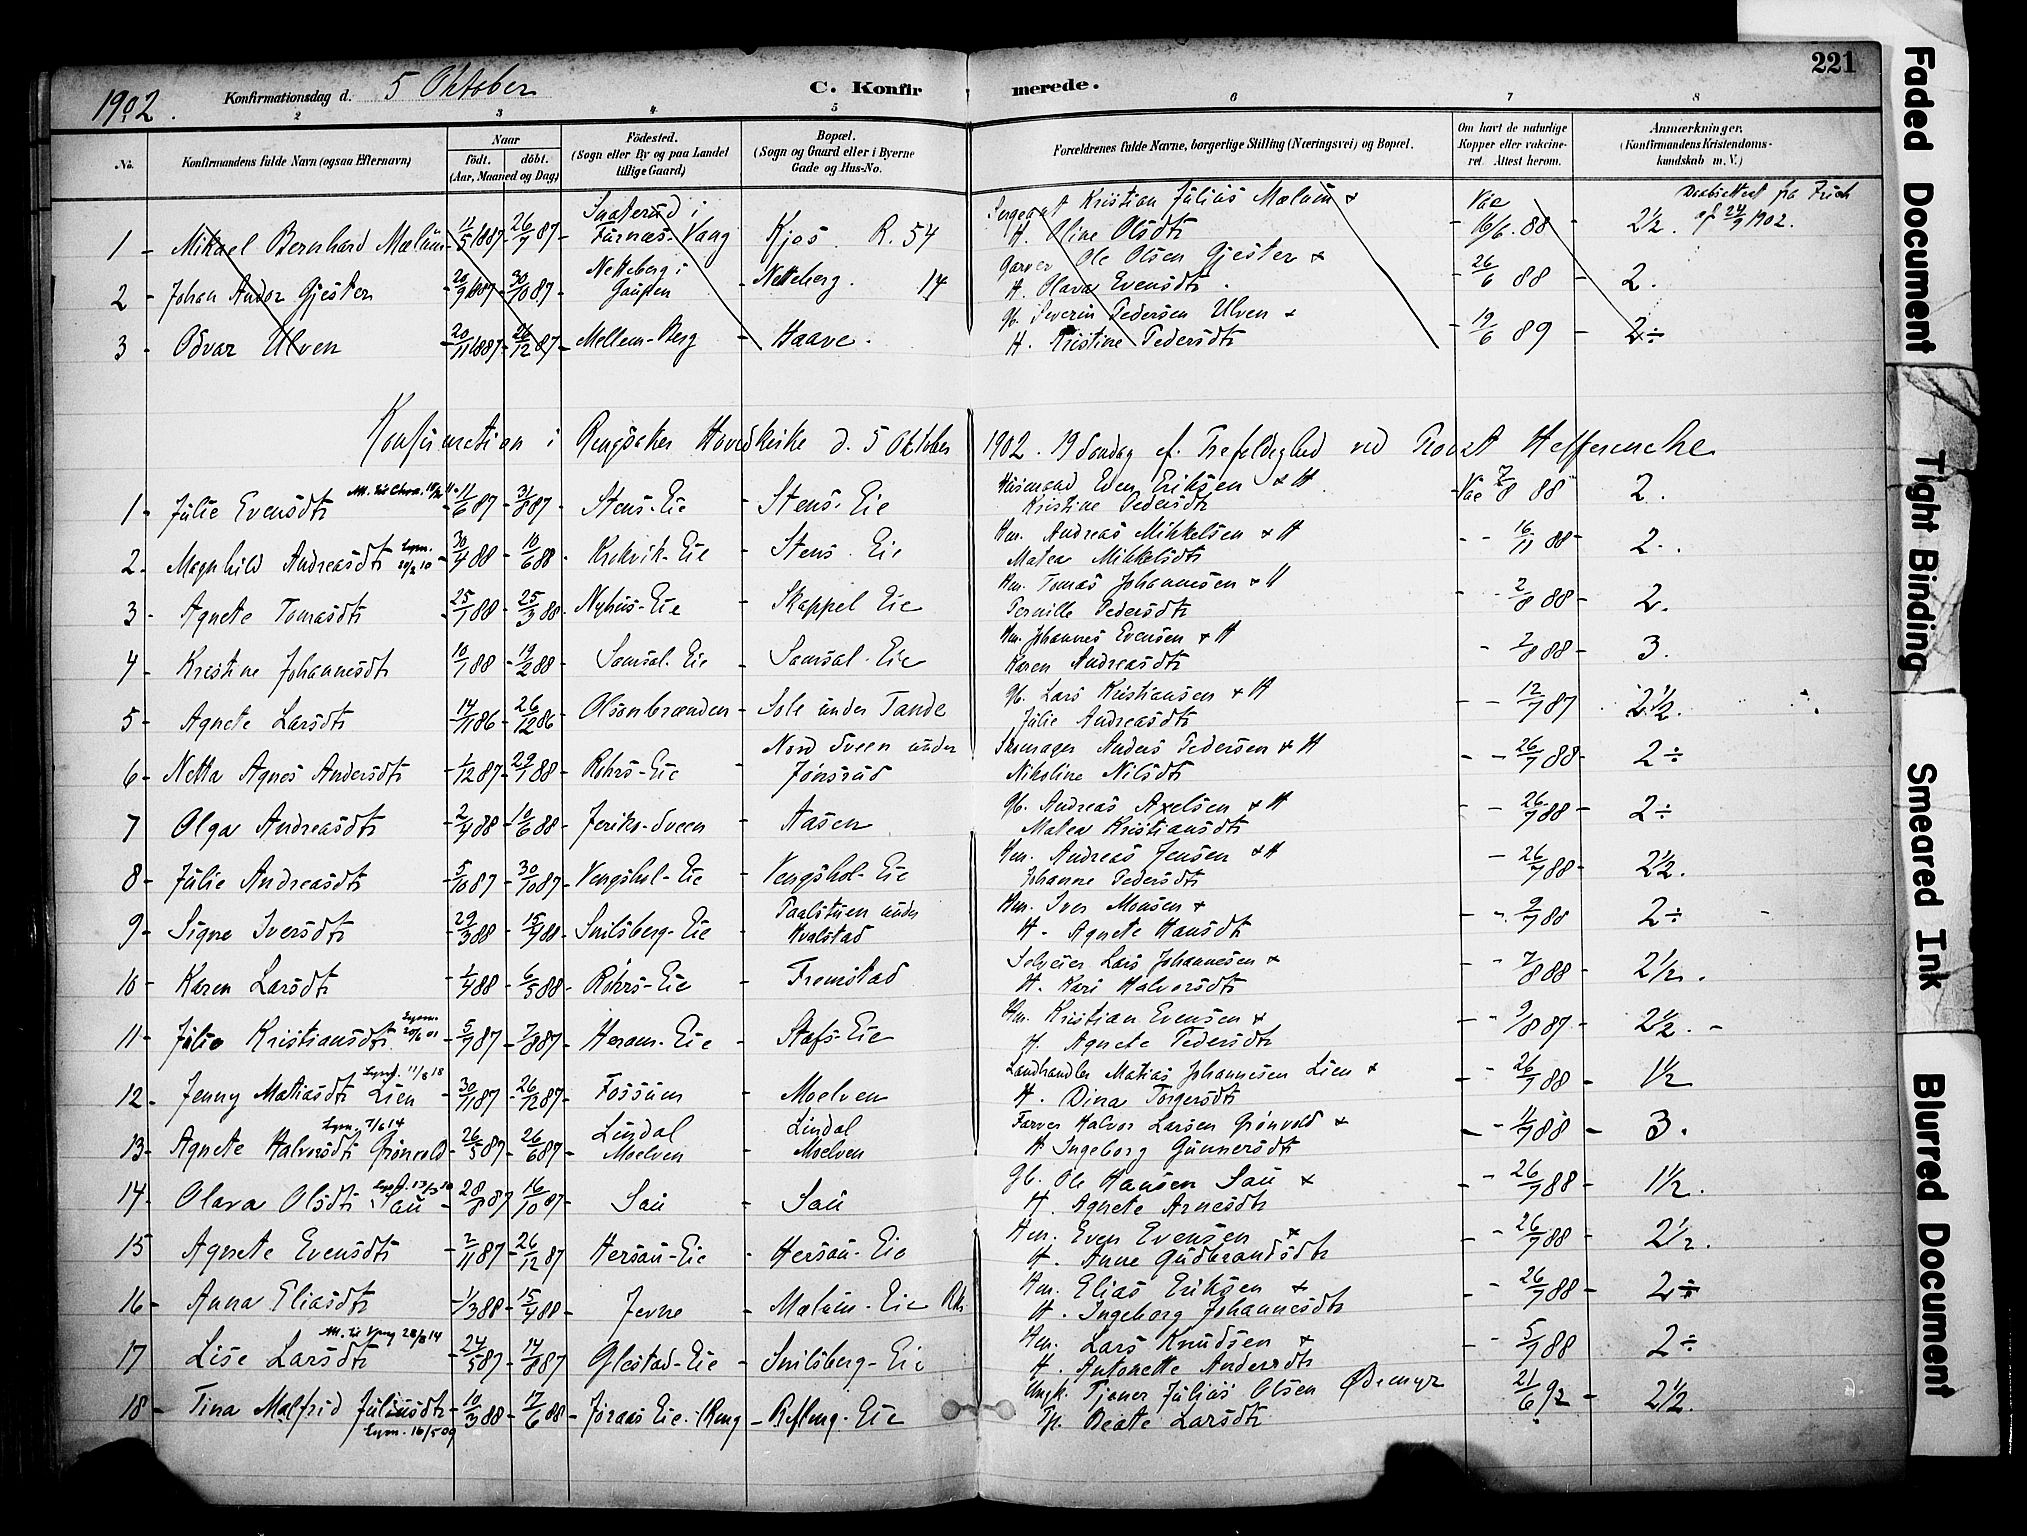 221
1902. Konfirmationsdag d. 5 Oktober C. Konfirmerede.
2 3 4 5 6 7 8
No. Konfirmandens fulde Navn (ogsaa Efternavn) Naar födt. döbt. (Aar, Maaned og Dag) Födested. (Sogn eller By og paa Landet tillige Gaard.) Bopæl. (Sogn og Gaard eller i Byerne Gade og Hus-No. Forældrenes fulde Navne, borgerlige Stilling (Næringsvei) og Bopæl. Om havt de naturlige Kopper eller vaccineret. Attest herom. Anmærkninger. (Konfirmandens Kristendomskundskab m. V.)
1 - Mikael Bernhard Mælum 11/5 1887 26/7 87 Snaterud i Furnæs - Vang Kjos. R. 54 Sergeant Kristian Julius Mælum & H. Oline Olsdtr Vac 16/6. 88 - 2½. Daabsattest fra Prich af 24/9 1902.
2 - Johan Andor Gjester 20/9 1887 30/10 87 Netteberg i Gaupen Netteberg. 14 Garver Ole Olsen Gjester & H. Olava Evensdtr. 26/6 88 - 2.
3 - Odvar Ulven 20/11 1887 26/12 87 Mellem-Berg - Haave. Gb. Severin Pedersen Ulven & H. Kristine Pedersdtr 19/6 89 - 2÷
Konfirmation i Ringsaker Hovedkirke d. 5 Oktober 1902. 19 Søndag ef. Trefoldighed ved Provst Heffermehl
1 - Julie Evensdtr 11/6 87 31/7 87 Stens-Eie - Stens-Eie Husmand Even Eriksen & H Kristine Pedersdtr Vac 7/8 88 - 2.
2 - Magnhild Andreasdtr 30/4 88 10/6 88 Krekvik-Eie - Stens-Eie Hm. Andreas Mikkelsen & H Matea Mikkelsdtr - - 16/11 88 - 2.
3 - Agnete Tomasdtr 25/1 88 25/3 88 Nyhus-Eie - Skappel Eie Hm. Tomas Johannesen & H Pernille Pedersdtr - - 2/8 88 - 2.
4 - Kristine Johannesdtr 10/1 88 19/2 88 Samsal-Eie - Samsal-Eie Hm. Johannes Evensen & H Karen Andreasdtr - 2/8 88 - 3.
5 - Agnete Larsdtr 14/11 86 26/12 86 Olsonbrænden - Sole under Tande Gb. Lars Kristiansen & H Julie Andreasdtr - - 12/7 87 2½.
6 - Netta Agnes Andersdtr 1/12 87 29/1 88 Røhrs-Eie - Nord Sveen under Jønsrud Skomager Anders Pedersen & H Nikoline Nilsdtr - - 26/7 88 - 2÷
7 Olga Andreasdtr 2/4 88 10/6 88 Jeriko-Sveen - Aasen Gb. Andreas Axelsen & H Matea Kristiansdtr - - 26/7 88 - 2÷
8 - Julie Andreasdtr 5/10 87 30/10 87 Vengshol-Eie - Vengshol-Eie Hm. Andreas Jensen & H Johanne Pedersdtr - 26/7 88 - 2½.
9 - Signe Iversdtr 29/3 88 15/4 88 Snilsberg-Eie - Taalstuen under Kvalstad Hm. Iver Monsen & H. Agnete Hansdtr - - 9/7 88 2÷
10 - Karen Larsdtr 1/4 88 6/5 88 Røhrs-Eie - Fremstad Selveier Lars Johannesen & H. Kari Halvorsdtr - - 7/8 88 - 2½.
11 - Julie Kristiansdtr 5/7 87 7/8 87 Heram-Eie - Stafs-Eie Hm. Kristian Evensen & H. Agnete Pedersdtr - - 9/8 87 - 2½.
12 - Jenny Matiasdtr Lien 30/11 87 26/12 87 Fossum - Moelven Landhandler Matias Johannesen Lien & H. Dina Torgersdtr - - 26/7 88 - 1½
13 - Agnete Halvorsdtr Grønvold 26/5 87 26/6 87 Lindal Moelven - Lindal Moelven Farver Halvor Larsen Grønvold & H Ingeborg Gunnersdtr - - 11/7 88 - 3.
14 - Olava Olsdtr Sau 28/8 87 16/10 87 Sau - Sau Gb. Ole Hansen Sau & H. Agnete Arnesdtr - - 26/7 88 - 1½.
15 Agnete Evensdtr 2/11 87 26/12 87 Hersau-Eie - Hersau-Eie Hm. Even Evensen & H. Anne Gudbrandsdtr - - 26/7 88 - 2½.
16 - Anna Eliasdtr 1/3 88 15/4 88 Jevne - Mælum-Eie Hm. Elias Eriksen & H. Ingeborg Johannesdtr - - 26/7 88 - 2÷
17 Lise Larsdtr 24/5 87 14/8 87 Glæstad-Eie - Snilsberg-Eie Hm. Lars Knudsen & H. Antonette Andersdtr - - 5/7 88 - 2÷
18 - Tina Malfrid Juliusdtr 10/3 88 17/6 88 Joraas Eie i Reng - Refling-Eie Ungk. Tjener Julius Olsen Ødemyr Pp. Beate Larsdtr 21/6 92 - 2½.
Lym. 16/5 09
Faded Document
Tight Binding
Smeared Ink
Blurred Document